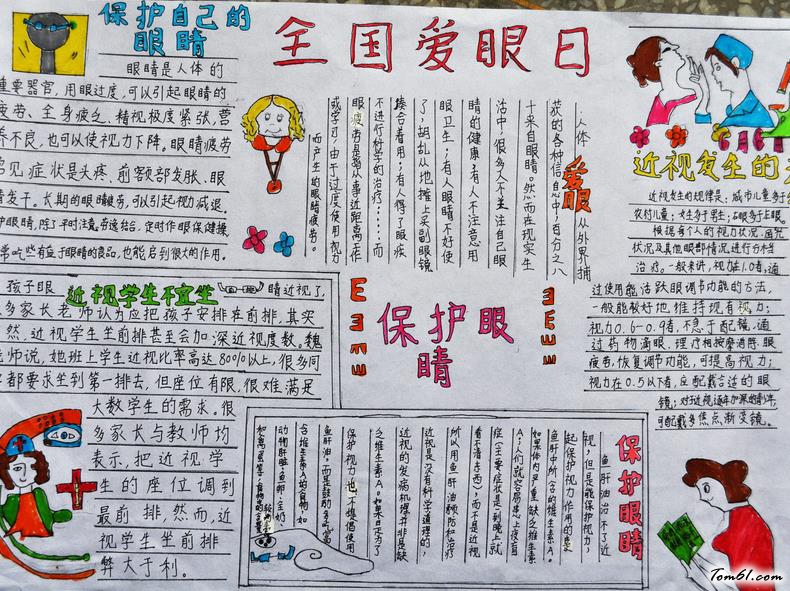 全国爱眼日
保护自己的
眼睛
眼睛是人体的
重要器官，用眼过度，可以引起眼睛的
疲劳、全身疲乏、精视极度紧张，营
养不良，也可以使视力下降。眼睛疲劳
常见症状是头疼，前额部发胀、眼
睛发干。长期的眼睛疲劳，可以引起视力减退。
护眼睛，除了平时注意劳逸结合，定时作眼保健操，
常吃些有益于眼睛的食品，也能启到很大的作用。
爱眼
人体从外界捕
获的各种信息中，百分之八
十来自眼睛。然而在现实生
活中，很多人不关注自己眼
睛的健康，有人不注意用
眼卫生；有人眼睛不好使
了，胡乱从地摊上买副眼镜
揍合着用；有人得了眼疾
不进行科学的治疗……而
眼疲劳是指从事近距离工作
或学习，由于过度使用视力
而产生的眼睛疲劳。
6月6日
近视发生的
近视发生的规律是：城市儿童多于
农村儿童；女生多于男生；右眼多于左眼。
根据有个人的视力状况、屈光
状况及其他眼部情况进行分档
治疗，一般来讲，视力在1.0者，通
过使用能活跃眼调节功能的方法，
一般能较好地维持现有视力；
视力0.6-0.9者，不急于配镜，通
过药物滴眼，理疗和按摩消除眼
疲劳，恢复调节功能，可提高视力；
视力在0.5以下者，应配戴合适的眼
镜；对近视逐年加深的青少年，
可配戴多焦点渐变镜。
近视学生不宜坐
孩子眼睛近视了，
多家长老师认为应把孩子安排在前排，其实
然，近视学生坐前排甚至会加深近视度数。魏
老师说，她班上学生近视比率高达80%以上，很多同
都要求坐到第一排去，但座位有限，很难满足
大数学生的需求。很
多家长与教师均
表示，把近视学
生的座位调到
最前排，然而，近
视学生坐前排
弊大于利。
E
E
保护眼
睛
保护眼睛
鱼肝油治不了近
视，但是能保护视力，
起保护视力作用的是
鱼肝中所含的维生素A。
如果体内严重缺乏维生素
A，人们就容易患上夜盲
症（主要症状是一到晚上就
看不清东西），而不是近视
所以用鱼肝油预防和治疗
近视是没有科学道理的，
近视的发病机理并非是缺
乏维生素A。如果只是为了
保护视力，也不提倡使用
鱼肝油，而是鼓励多吃富
含维生素A的食物，如
动物肝脏、鱼卵、全奶、
Tom61.com